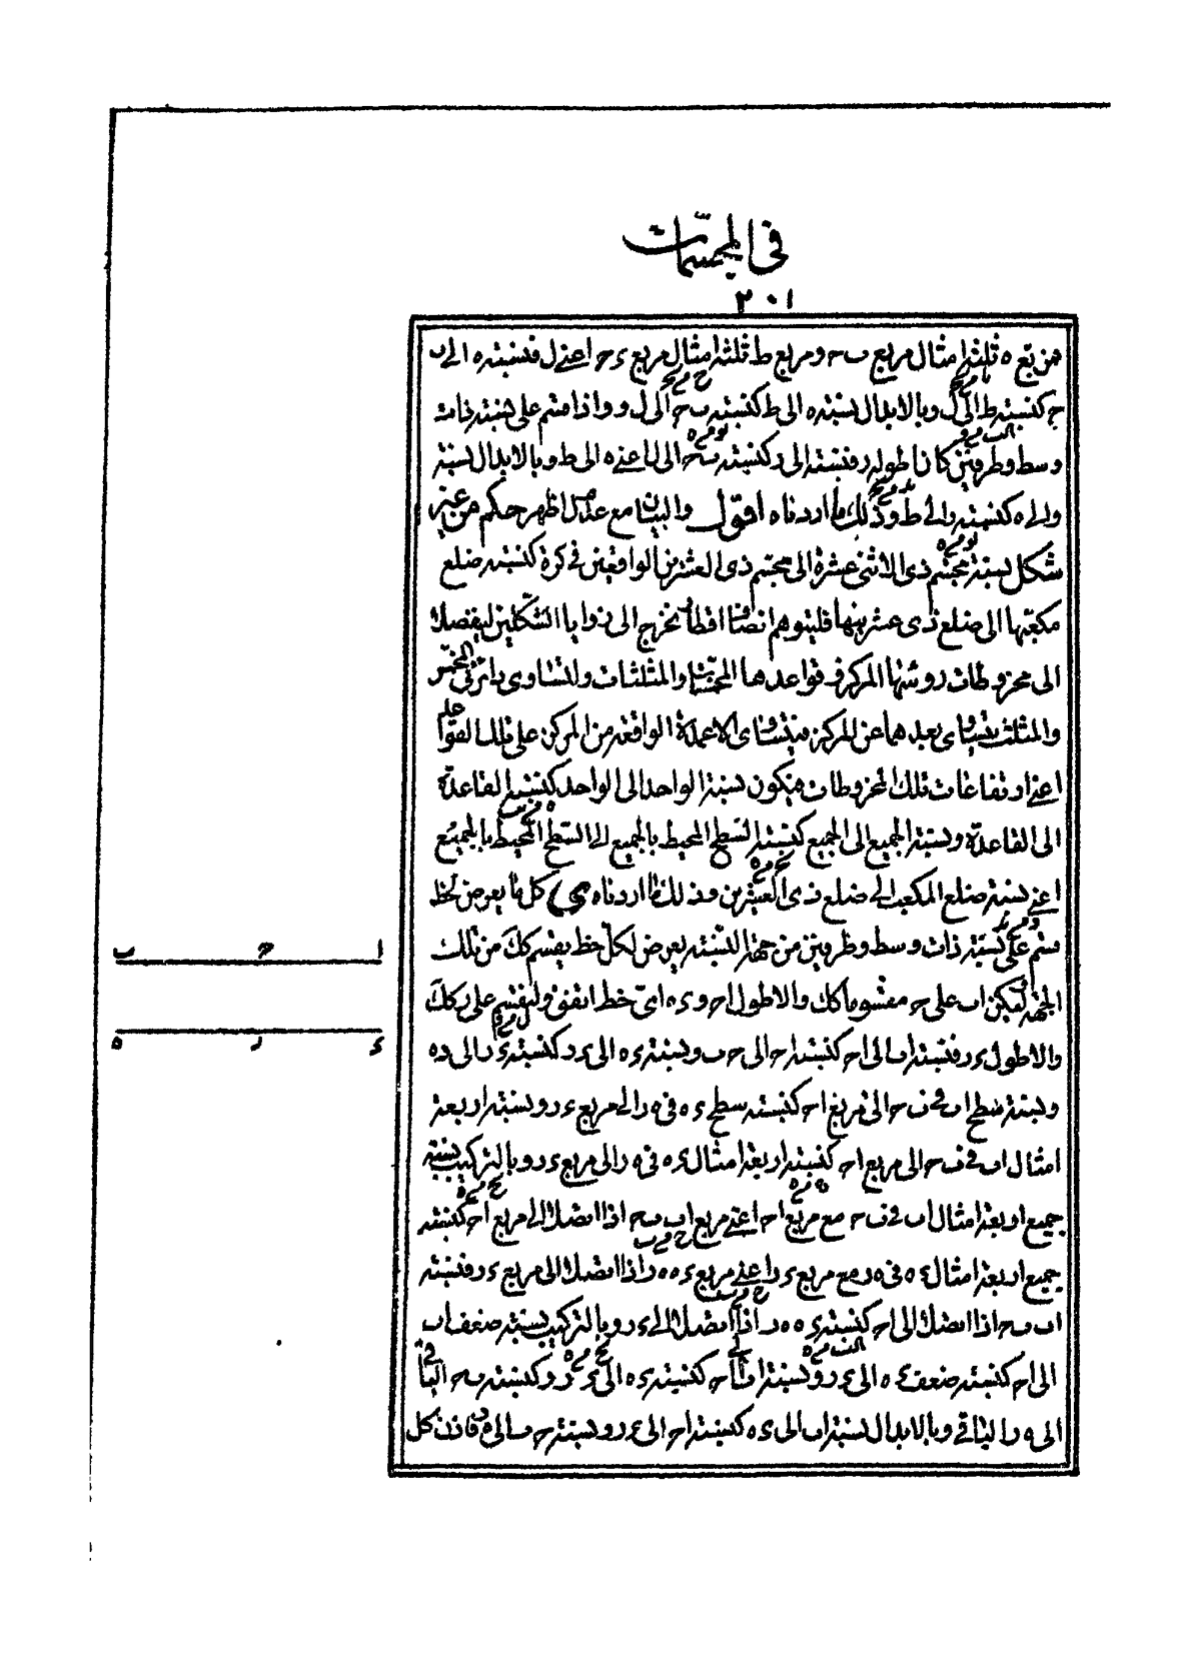 في المجسّمات
٢٠١
من بع ه ثلثة امثال مربع ب ح ومربع ط ثلثة امثال مربع ء ح اعنى ل فنسبته ه الى ب
ح كنسبته ط الى ل وبالابدال نسبته ه الى ط كنسبته ب ح الى ل و واذا قسم على نسبته ذات
وسط وطرفين كان اطوله ر فنسبته الى ر كنسبته ب ح الى ل اعنى ه الى ط وبالابدال نسبته
والى ه كنسبته ر الى ط وذلك ما اردناه اقول والبيان مع عدم ل اظهر حكم من غير
شكل نسبته مجسم ذى الاثنى عشرة الى مجسم ذى العشرين الواقعين فى كرة كنسبته ضلع
مكعبها الى ضلع ذى عشرينها فليتوهم انصاف اقطار تخرج الى زوايا الشكلين ليفصلا
الى مخروطات روسها المركز وقواعدها المخمسات والمثلثات ولتساوى دائرتى المخمس
والمثلث يتساوى بعدهما عن المركز فيتساوى الاعمدة الواقعة من المركز على تلك القواعد
اعنى ارتفاعات تلك المخروطات فيكون نسبة الواحد الى الواحد كنسبة القاعدة
الى القاعدة ونسبة الجميع الى الجميع كنسبة السطح المحيط بالجميع الى السطح المحيط بالجميع
اعنى نسبة ضلع المكعب الى ضلع ذى العشرين وذلك ما اردناه كل ما يعرض لخط
قسم على نسبة ذات وسط وطرفين من جهة النسبة يعرض لكل خط يقسم كك من تلك
الجهة ليكن ا ب على ح مقسوما كك والاطول ا ح و ء ه اى خط اتفق ولنقسم على ر كك
والاطول ء ر فنسبة ا ب الى ا ح كنسبة ا ح الى ح ب ونسبة ء ه الى ء ر كنسبة ء ر الى ر ه
ونسبة سطح ا ب فى ب ح الى مربع ا ح كنسبته سطح ء ه فى ه ر الى مربع ء ر ونسبة اربعة
امثال ا ب فى ب ح الى مربع ا ح كنسبة اربعة امثال ء ه فى ه ر الى مربع ء ر وبالتركيب نسبة
جميع اربعة امثال ا ب فى ب ح مع مربع ا ح اعنى مربع ا ب ب ح اذا اتصلا الى مربع ا ح كنسبة
جميع اربعة امثال ء ه فى ه ر مع مربع ء ر اعنى مربع ء ه ه ر اذا اتصلا الى مربع ء ر فنسبة
ا ب ب ح اذا اتصلا الى ا ح كنسبة ء ه ه ر اذا اتصلا الى ء ر وبالتركيب نسبة ضعف ا ب
الى ا ح كنسبة ضعف ء ه الى ء ر ونسبة ا ب الى ا ح كنسبة ء ه الى ء ر وكنسبة ب ح الباقى
الى ه ر الباقى وبالابدال نسبة ا ب الى ء ه كنسبة ا ح الى ء ر ونسبة ح ب الى ه ر فاذن كل
ا ح ب
ء ر ه